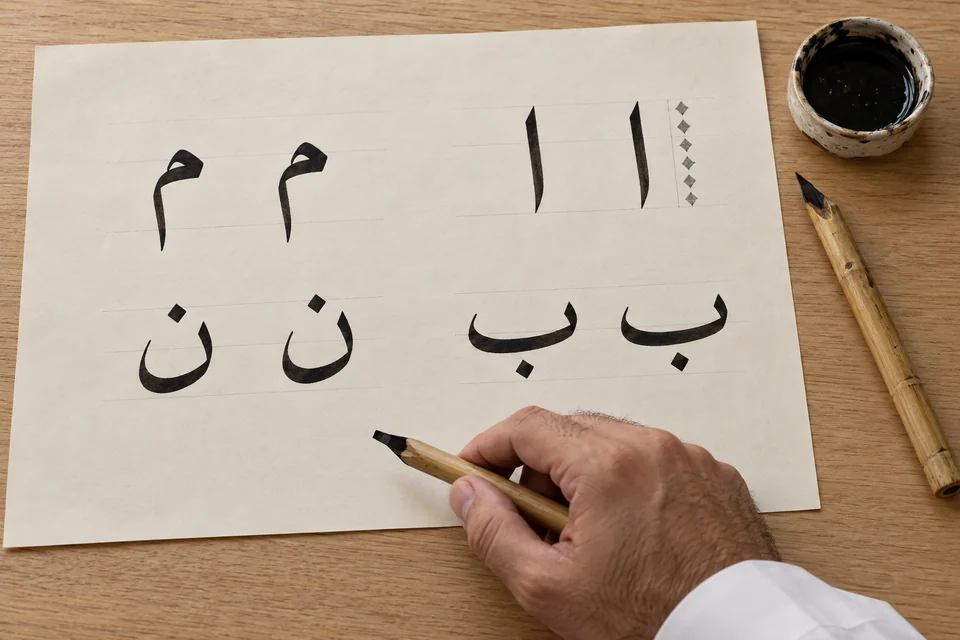 ا ا م م
ب ب ن ن